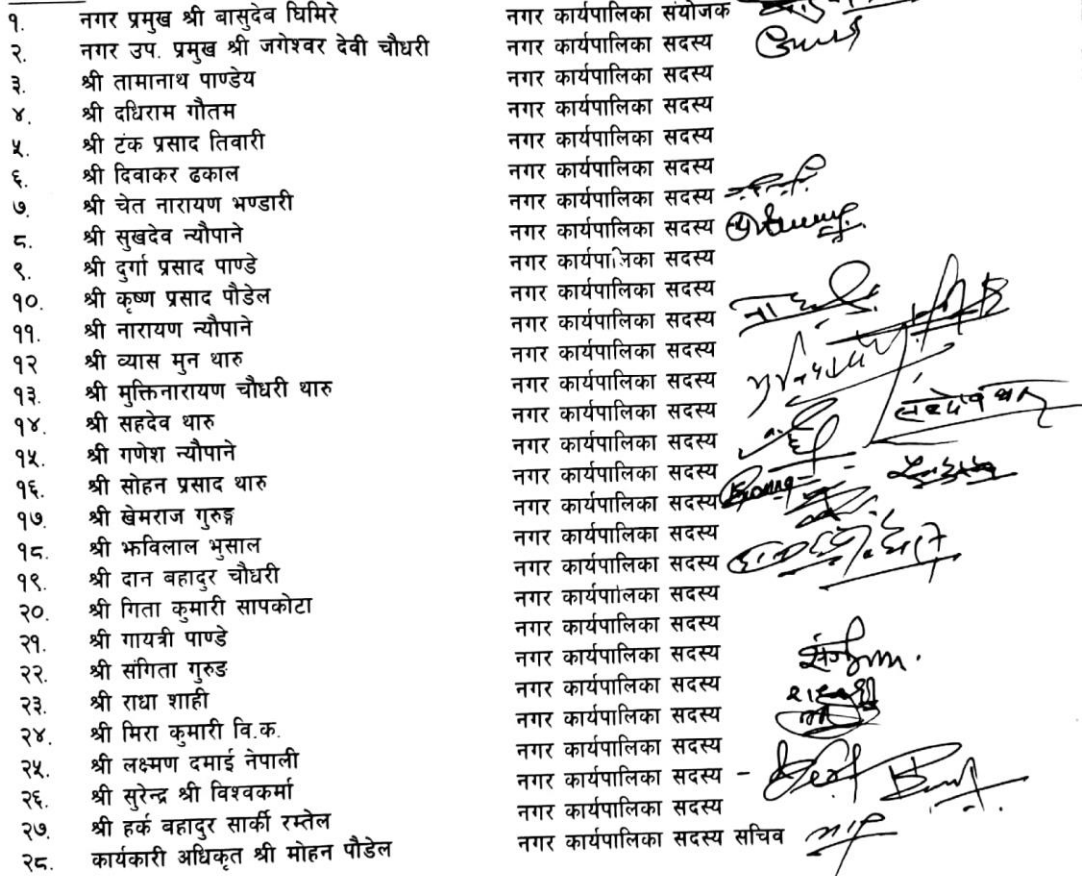 १. नगर प्रमुख श्री बासुदेब घिमिरे नगर कार्यपालिका संयोजक
२. नगर उप. प्रमुख श्री जगेश्वर देवी चौधरी नगर कार्यपालिका सदस्य
३. श्री तामानाथ पाण्डेय नगर कार्यपालिका सदस्य
४. श्री दधिराम गौतम नगर कार्यपालिका सदस्य
५. श्री टंक प्रसाद तिवारी नगर कार्यपालिका सदस्य
६. श्री दिवाकर ढकाल नगर कार्यपालिका सदस्य
७. श्री चेत नारायण भण्डारी नगर कार्यपालिका सदस्य
८. श्री सुखदेव न्यौपाने नगर कार्यपालिका सदस्य
९. श्री दुर्गा प्रसाद पाण्डे नगर कार्यपालिका सदस्य
१०. श्री कृष्ण प्रसाद पौडेल नगर कार्यपालिका सदस्य
११. श्री नारायण न्यौपाने नगर कार्यपालिका सदस्य
१२ श्री व्यास मुन थारु नगर कार्यपालिका सदस्य
१३. श्री मुक्तिनारायण चौधरी थारु नगर कार्यपालिका सदस्य
१४. श्री सहदेव थारु नगर कार्यपालिका सदस्य
१५. श्री गणेश न्यौपाने नगर कार्यपालिका सदस्य
१६. श्री सोहन प्रसाद थारु नगर कार्यपालिका सदस्य
१७. श्री खेमराज गुरुङ्ग नगर कार्यपालिका सदस्य
१८. श्री झविलाल भुसाल नगर कार्यपालिका सदस्य
१९. श्री दान बहादुर चौधरी नगर कार्यपालिका सदस्य
२०. श्री गिता कुमारी सापकोटा नगर कार्यपालिका सदस्य
२१. श्री गायत्री पाण्डे नगर कार्यपालिका सदस्य
२२. श्री संगिता गुरुङ नगर कार्यपालिका सदस्य
२३. श्री राधा शाही नगर कार्यपालिका सदस्य
२४. श्री मिरा कुमारी वि.क. नगर कार्यपालिका सदस्य
२५. श्री लक्ष्मण दमाई नेपाली नगर कार्यपालिका सदस्य
२६. श्री सुरेन्द्र श्री विश्वकर्मा नगर कार्यपालिका सदस्य -
२७. श्री हर्क बहादुर सार्की रम्तेल नगर कार्यपालिका सदस्य
२८. कार्यकारी अधिकृत श्री मोहन पौडेल नगर कार्यपालिका सदस्य सचिव